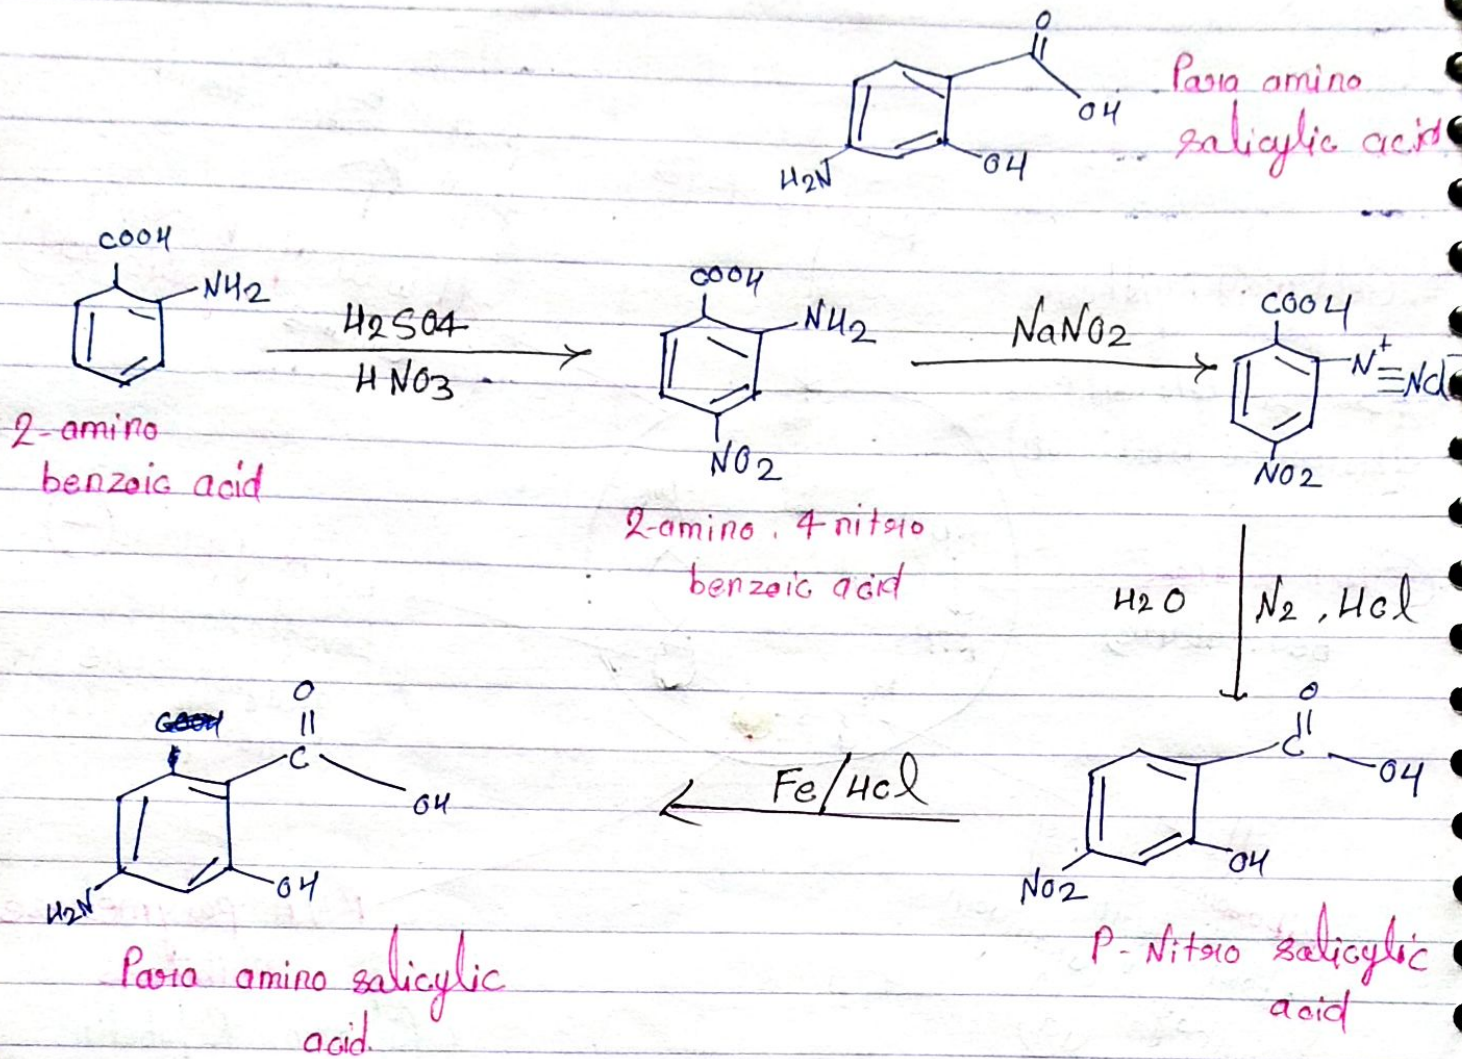 O
OH
OH
H2N
Para amino
salicylic acid
COOH
NH2
2-amino
benzoic acid
H2SO4
HNO3
COOH
NH2
NO2
2-amino. 4 nitro
benzoic acid
NaNO2
COOH
N+≡NCl-
NO2
H2O
N2, HCl
O
C
OH
OH
NO2
P-Nitro salicylic
acid
Fe/HCl
O
C
OH
OH
H2N
Para amino salicylic
acid.